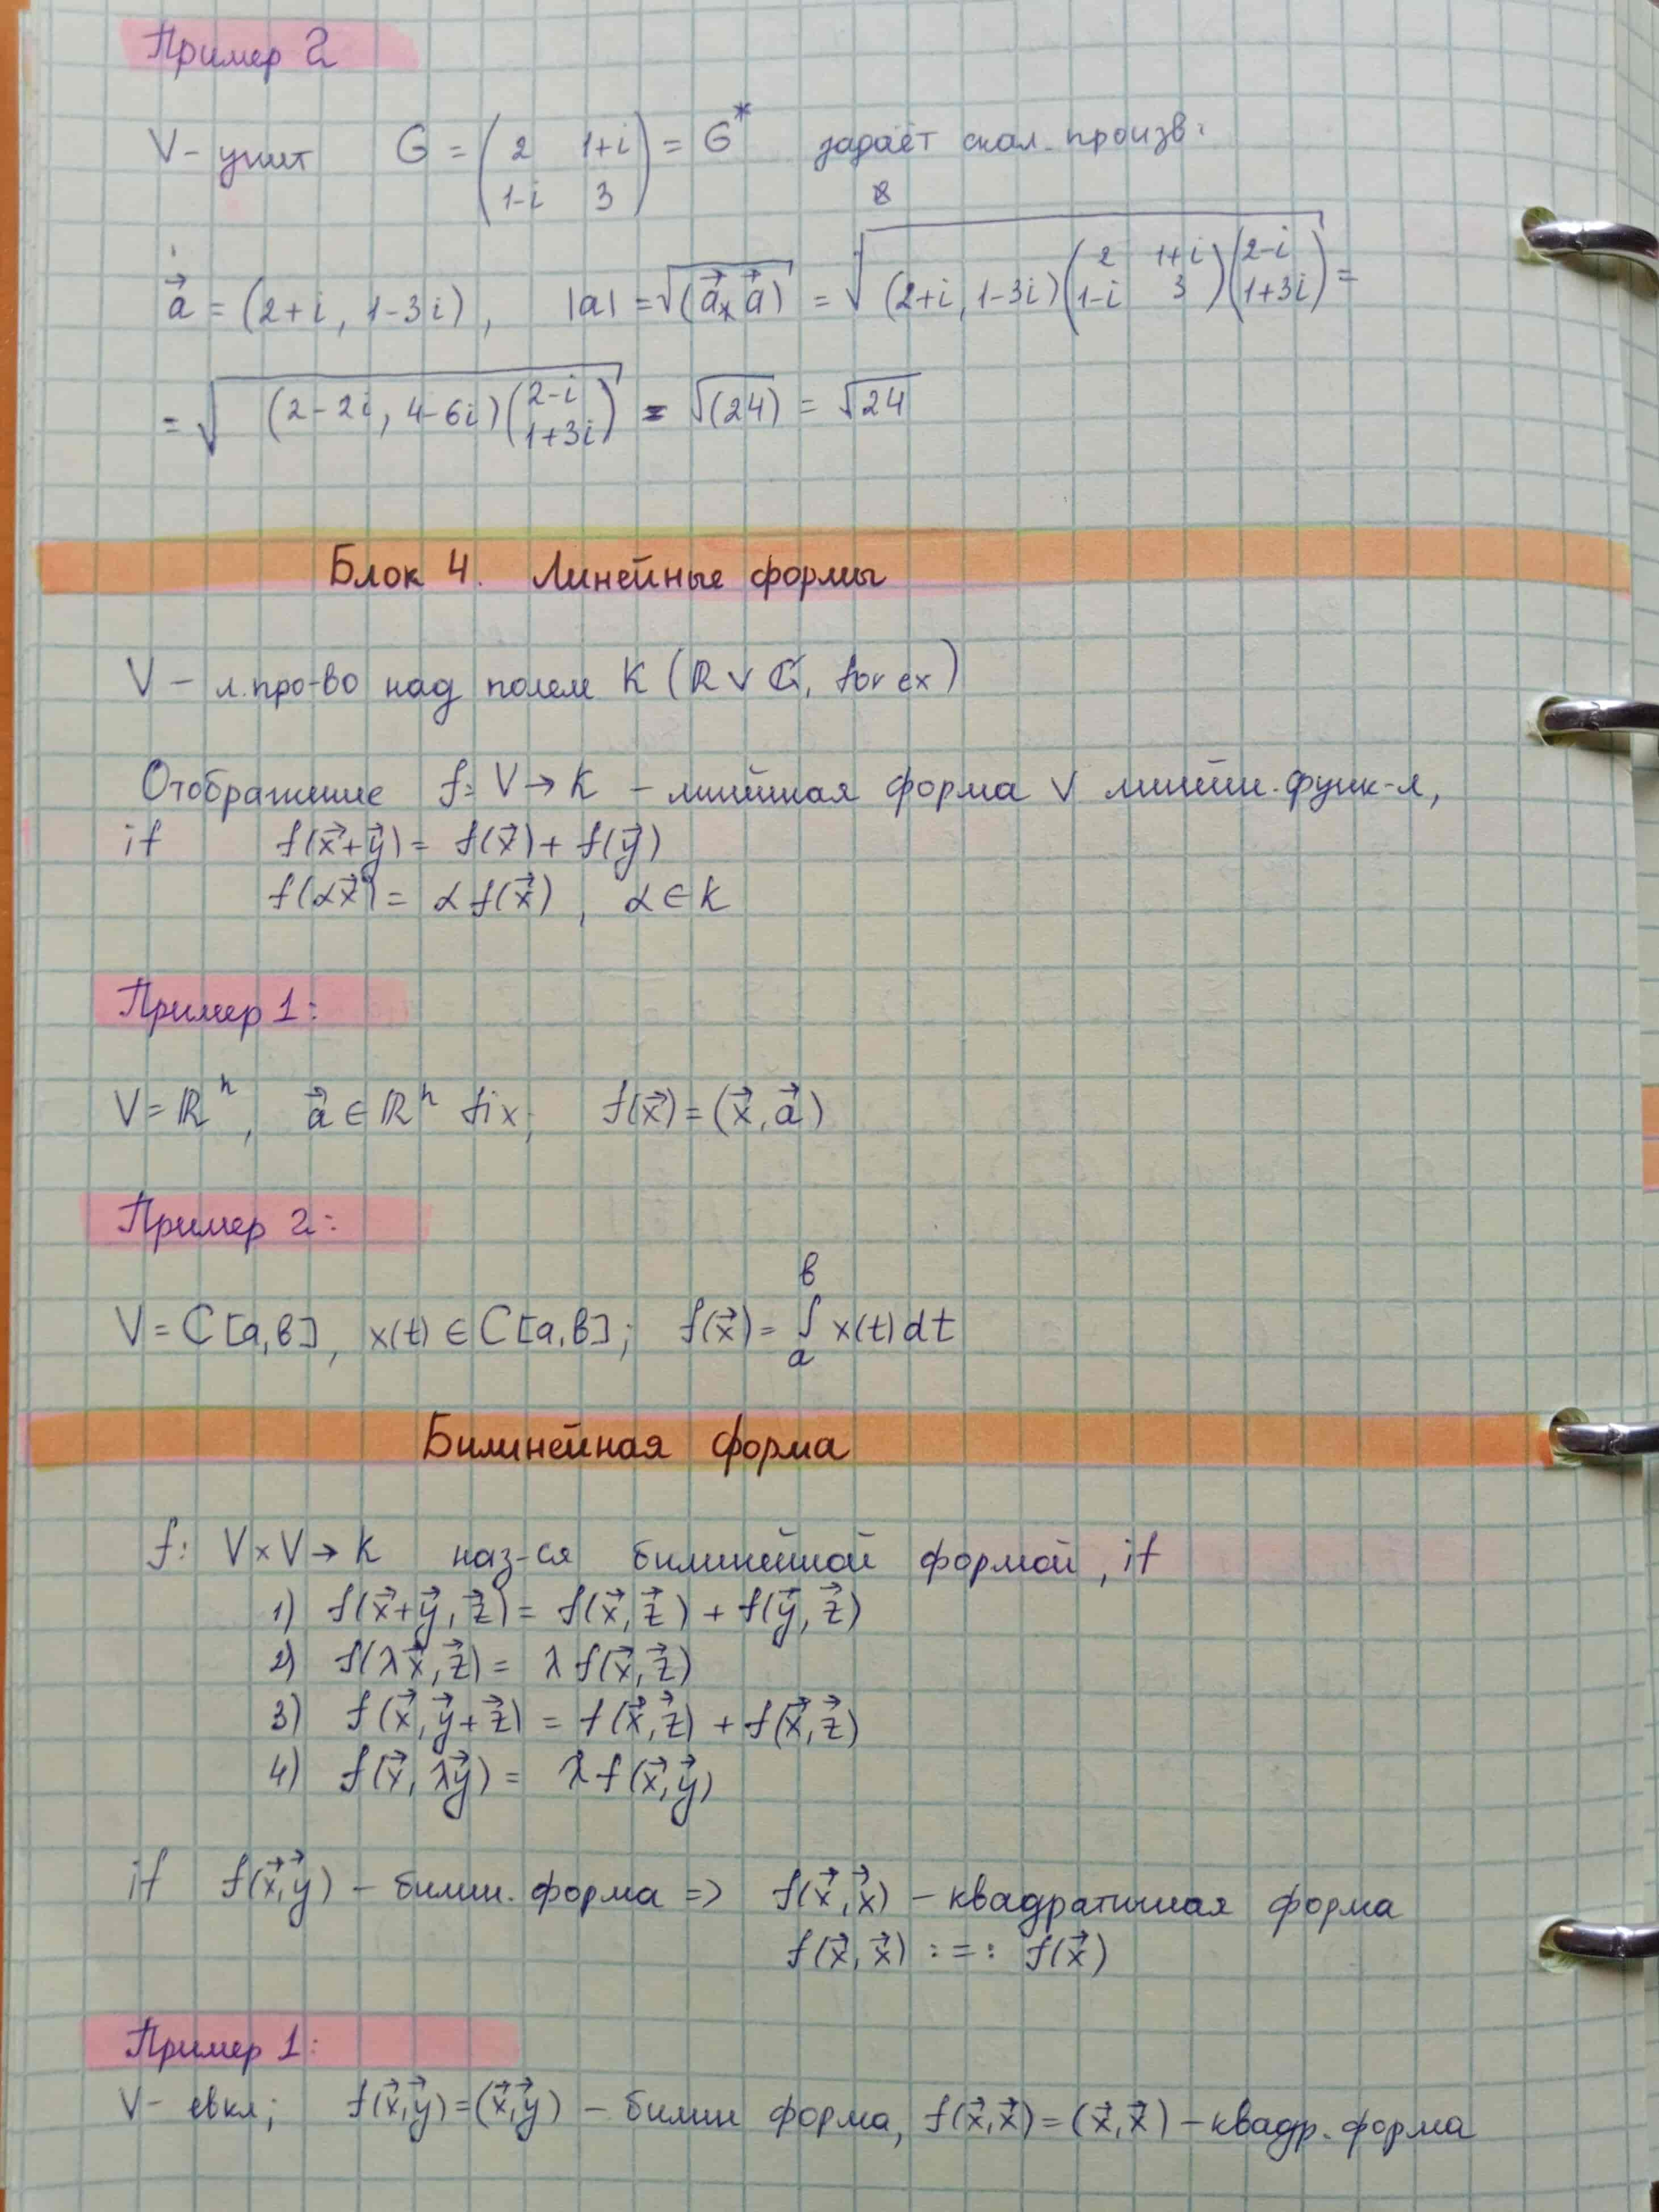 Пример 2
V - унит G = ( 2 1+i ; 1-i 3 ) = G* задаёт скал. произв.
a⃗ = (2+i, 1-3i), |a| = √(a⃗ₓ a⃗) = √((2+i, 1-3i)( 2 1+i ; 1-i 3 )( 2-i ; 1+3i )) =
= √((2-2i, 4-6i)( 2-i ; 1+3i )) = √(24) = √24
Блок 4. Линейные формы
V - л.про-во над полем K (ℝ ∨ ℂ, for ex)
Отображение f: V → K - линейная форма ∨ линейн. функ-л,
if f(x⃗+y⃗) = f(x⃗) + f(y⃗)
f(αx⃗) = α f(x⃗), α ∈ K
Пример 1:
V = ℝⁿ, a⃗ ∈ ℝⁿ fix; f(x⃗) = (x⃗, a⃗)
Пример 2:
V = C[a,b], x(t) ∈ C[a,b]; f(x⃗) = ∫ₐᵇ x(t)dt
Билинейная форма
f: V × V → K наз-ся билинейной формой, if
1) f(x⃗+y⃗, z⃗) = f(x⃗, z⃗) + f(y⃗, z⃗)
2) f(λx⃗, z⃗) = λ f(x⃗, z⃗)
3) f(x⃗, y⃗+z⃗) = f(x⃗, z⃗) + f(x⃗, z⃗)
4) f(x⃗, λy⃗) = λ f(x⃗, y⃗)
if f(x⃗, y⃗) - билин. форма => f(x⃗, x⃗) - квадратичная форма
f(x⃗, x⃗) :=: f(x⃗)
Пример 1:
V - евкл; f(x⃗, y⃗) = (x⃗, y⃗) - билин форма, f(x⃗, x⃗) = (x⃗, x⃗) - квадр. форма